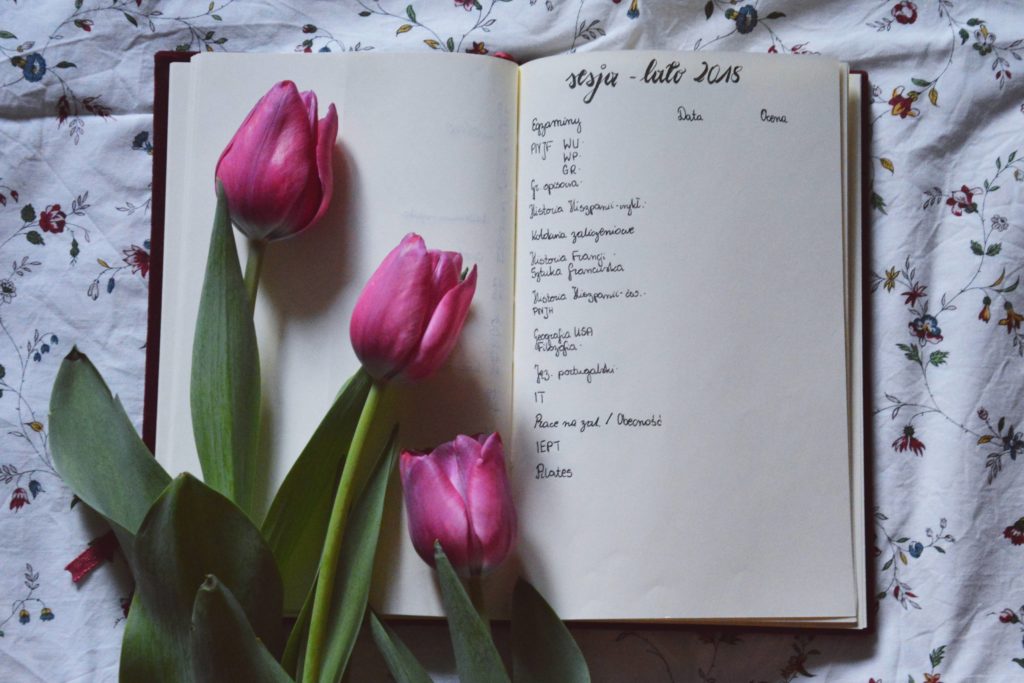 sesja - lato 2018
Egzaminy Data Ocena
PNJF WU
WP
GR.
Gr. opisowa
Historia Hiszpanii-wykł.
Kolokwia zaliczeniowe
Historia Francji
Sztuka francuska
Historia Hiszpanii-ćw.
PNJH
Geografia USA
Filozofia
Jęz. portugalski
IT
Prace na zal. / Obecność
IEPT
Pilates